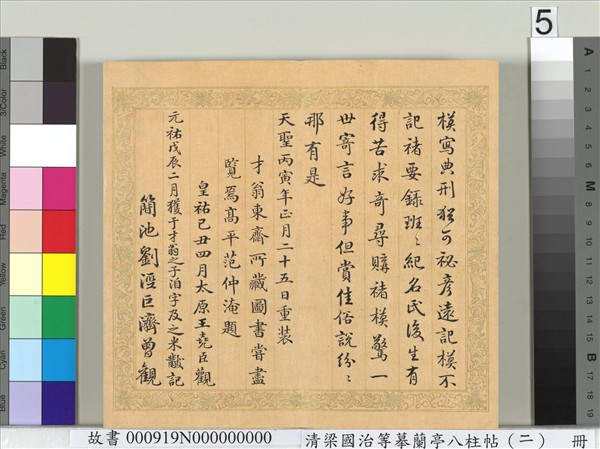 模寫典刑猶可祕彦遠記模不
記褚要錄班〻紀名氏後生有
得苦求奇尋購褚模驚一
世寄言好事但賞佳俗說紛〻
那有是
天聖丙寅年正月二十五日重裝
才翁東齋所藏圖書嘗盡
覽焉高平范仲淹題
皇祐己丑四月太原王堯臣觀
元祐戊辰二月獲于才翁之子洎字及之米黻記
簡池劉涇巨濟曾觀
5
Black
3/Color
White
Magenta
Red
Yellow
Green
Cyan
Blue
A
1
2
3
4
5
6
M
8
9
10
11
12
13
14
15
B
17
18
19
故書 000919N000000000
清梁國治等摹蘭亭八柱帖(二) 冊